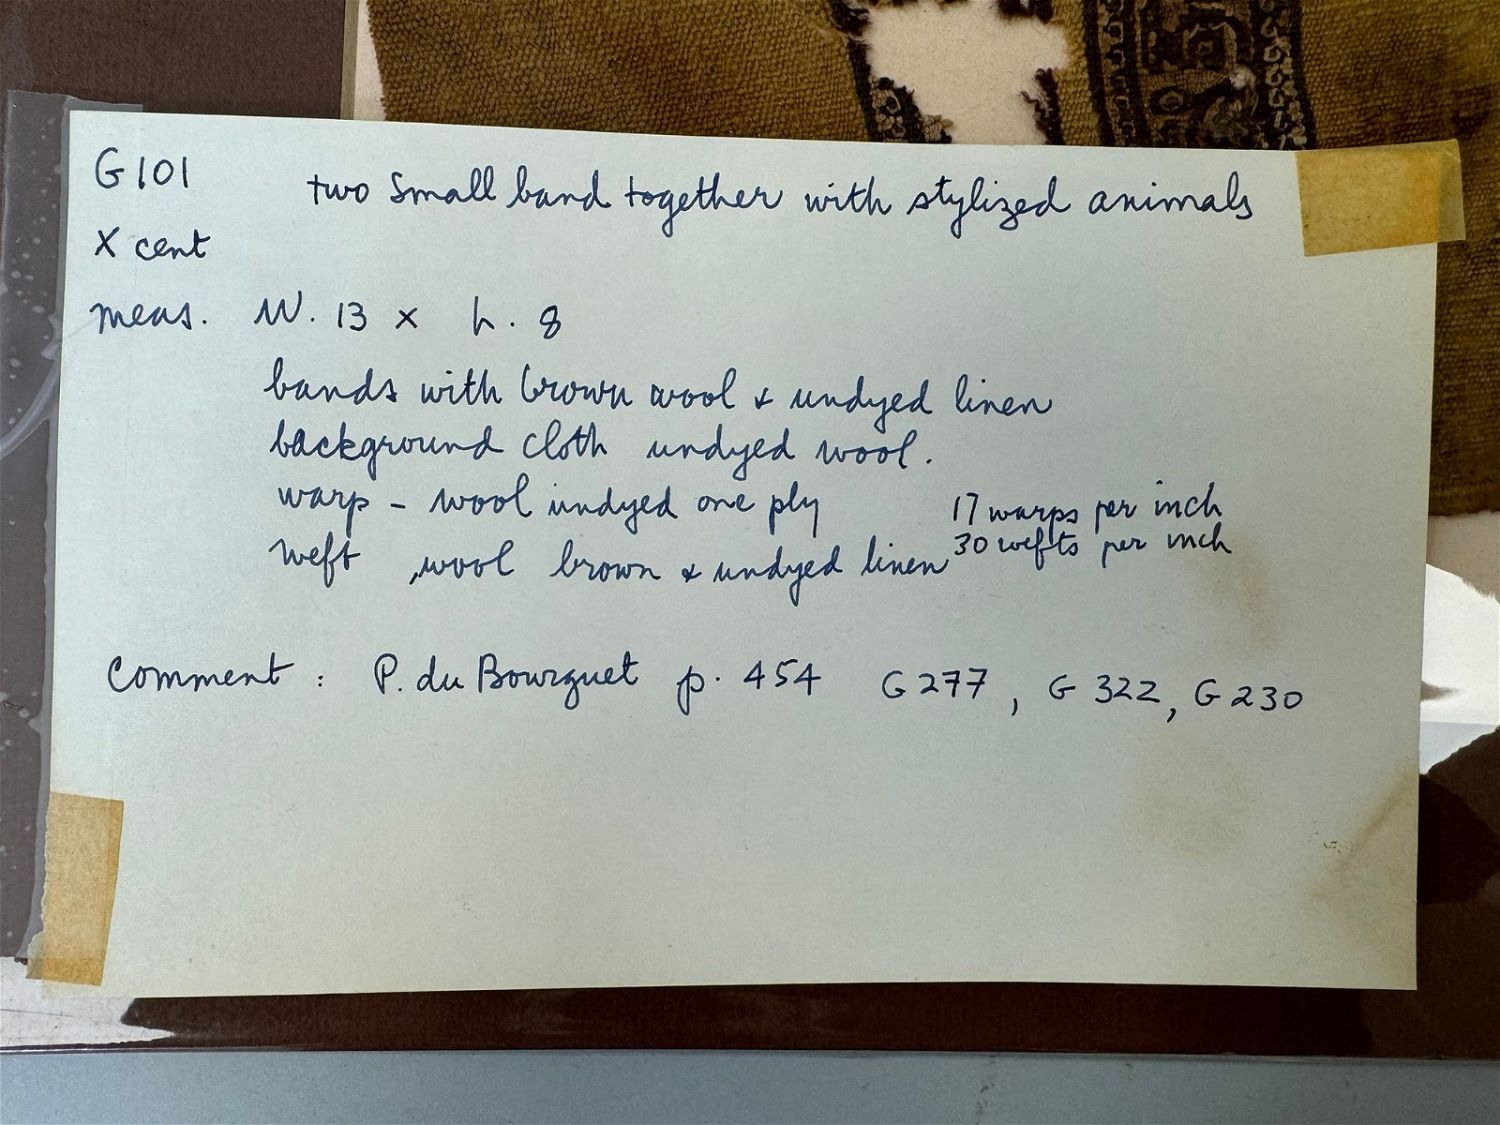 G101 two small band together with stylized animals
X cent
meas. W. 13 x h. 8
bands with brown wool & undyed linen
background cloth undyed wool.
warp - wool undyed one ply 17 warps per inch
weft , wool brown & undyed linen 30 wefts per inch
Comment : P. du Bourguet p. 454 G 277, G 322, G 230